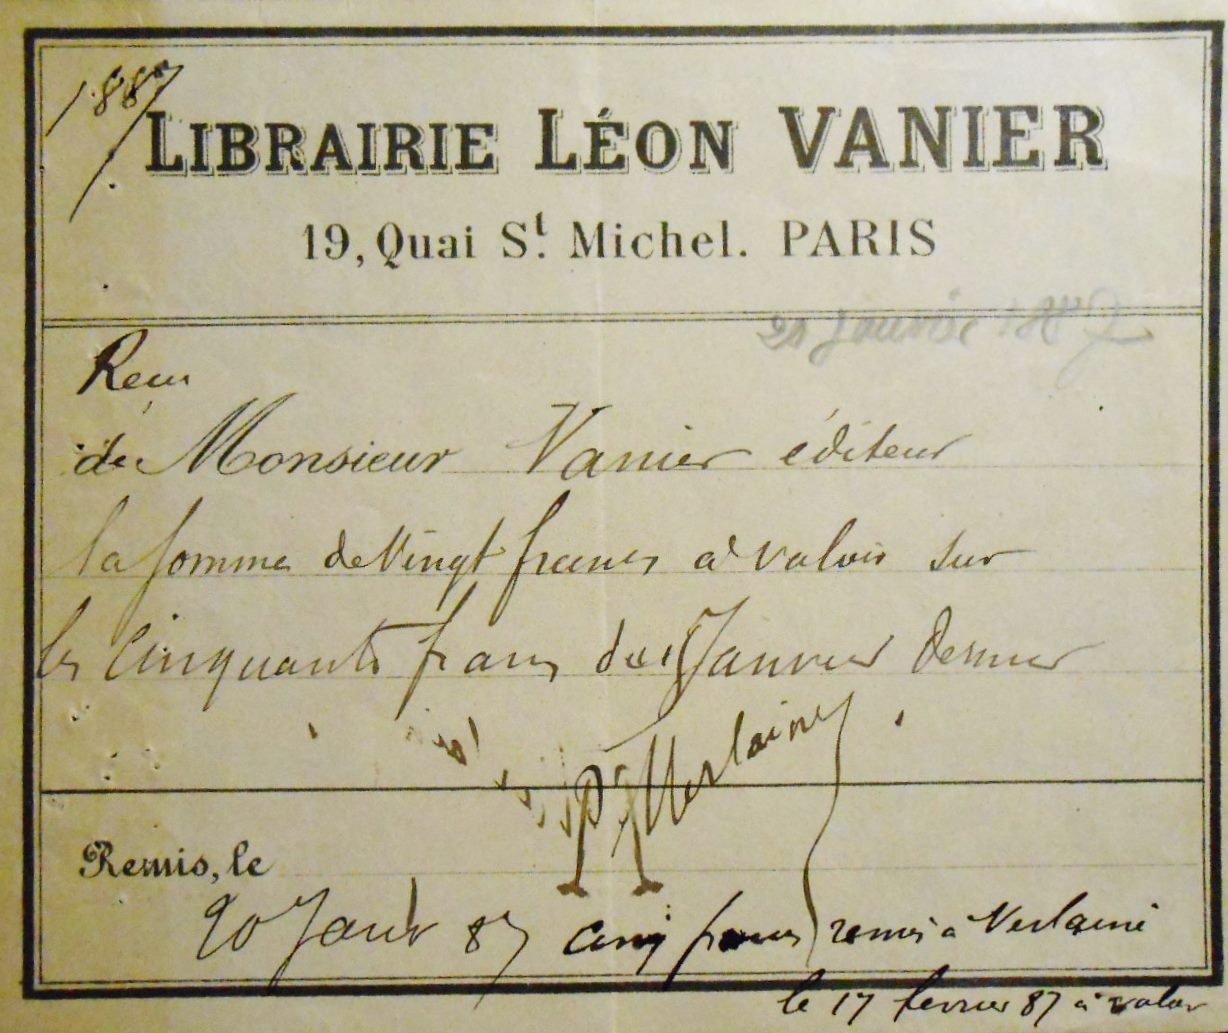 1887
LIBRAIRIE LÉON VANIER
19, Quai St. Michel. PARIS
20 Janvier 1887
Recu
de Monsieur Vanier éditeur
la somme de Vingt francs à valoir sur
les cinquante francs de Janvier dernier
P Verlaine
Remis, le
20 Janvr 87 cinq francs remis à Verlaine
le 17 fevrier 87 à valoir